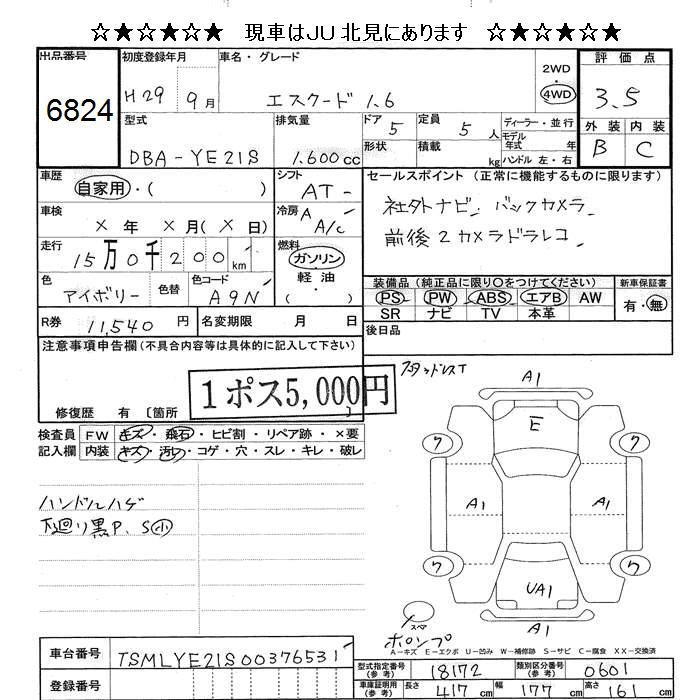 ☆★☆★☆★ 現車はJU北見にあります ☆★☆★☆★
出品番号
6824
初度登録年月
H29 9月
車名・グレード
エスクード 1.6
2WD
4WD
評価点
3.5
外装 内装
B C
型式
DBA-YE21S
排気量
1.600cc
ドア 5
形状
定員 5 人
積載 kg
ディーラー・並行
モデル年式 年
ハンドル 左・右
車歴
自家用・( )
シフト
AT-
車検
×年 ×月(×日)
冷房
A
A/C
走行
15万0千200km
燃料
ガソリン
軽油
( )
色
アイボリー
色替
色コード
A9N
セールスポイント (正常に機能するものに限ります)
社外ナビ バックカメラ
前後2カメラドラレコ
装備品 (純正品に限り○をつけてください)
PS PW ABS エアB AW
SR ナビ TV 本革
新車保証書
有・無
R券 11,540円
名変期限 月 日
後日品
注意事項申告欄(不具合内容等は具体的に記入して下さい)
1ポス5,000円
修復歴 有 〔箇所 〕
スタッドレスT
検査員
記入欄
FW キズ・飛石・ヒビ割・リペア跡・×要
内装 キズ・汚れ・コゲ・穴・スレ・キレ・破レ
ハンドルハゲ
下廻り黒P、S小
A1
E
ワ ワ
A1 A1 A1
ワ ワ
UA1
スペア
A1
ポンプ
A-キズ E-エクボ U-凹み W-補修跡 S-サビ C-腐食 XX-交換済
車台番号
TSMLYE21S00376531
登録番号
型式指定番号
(参考)
18172
類別区分番号
(参考)
0601
車庫証明用
(参考)
長さ 417cm 幅 177cm 高さ 161cm